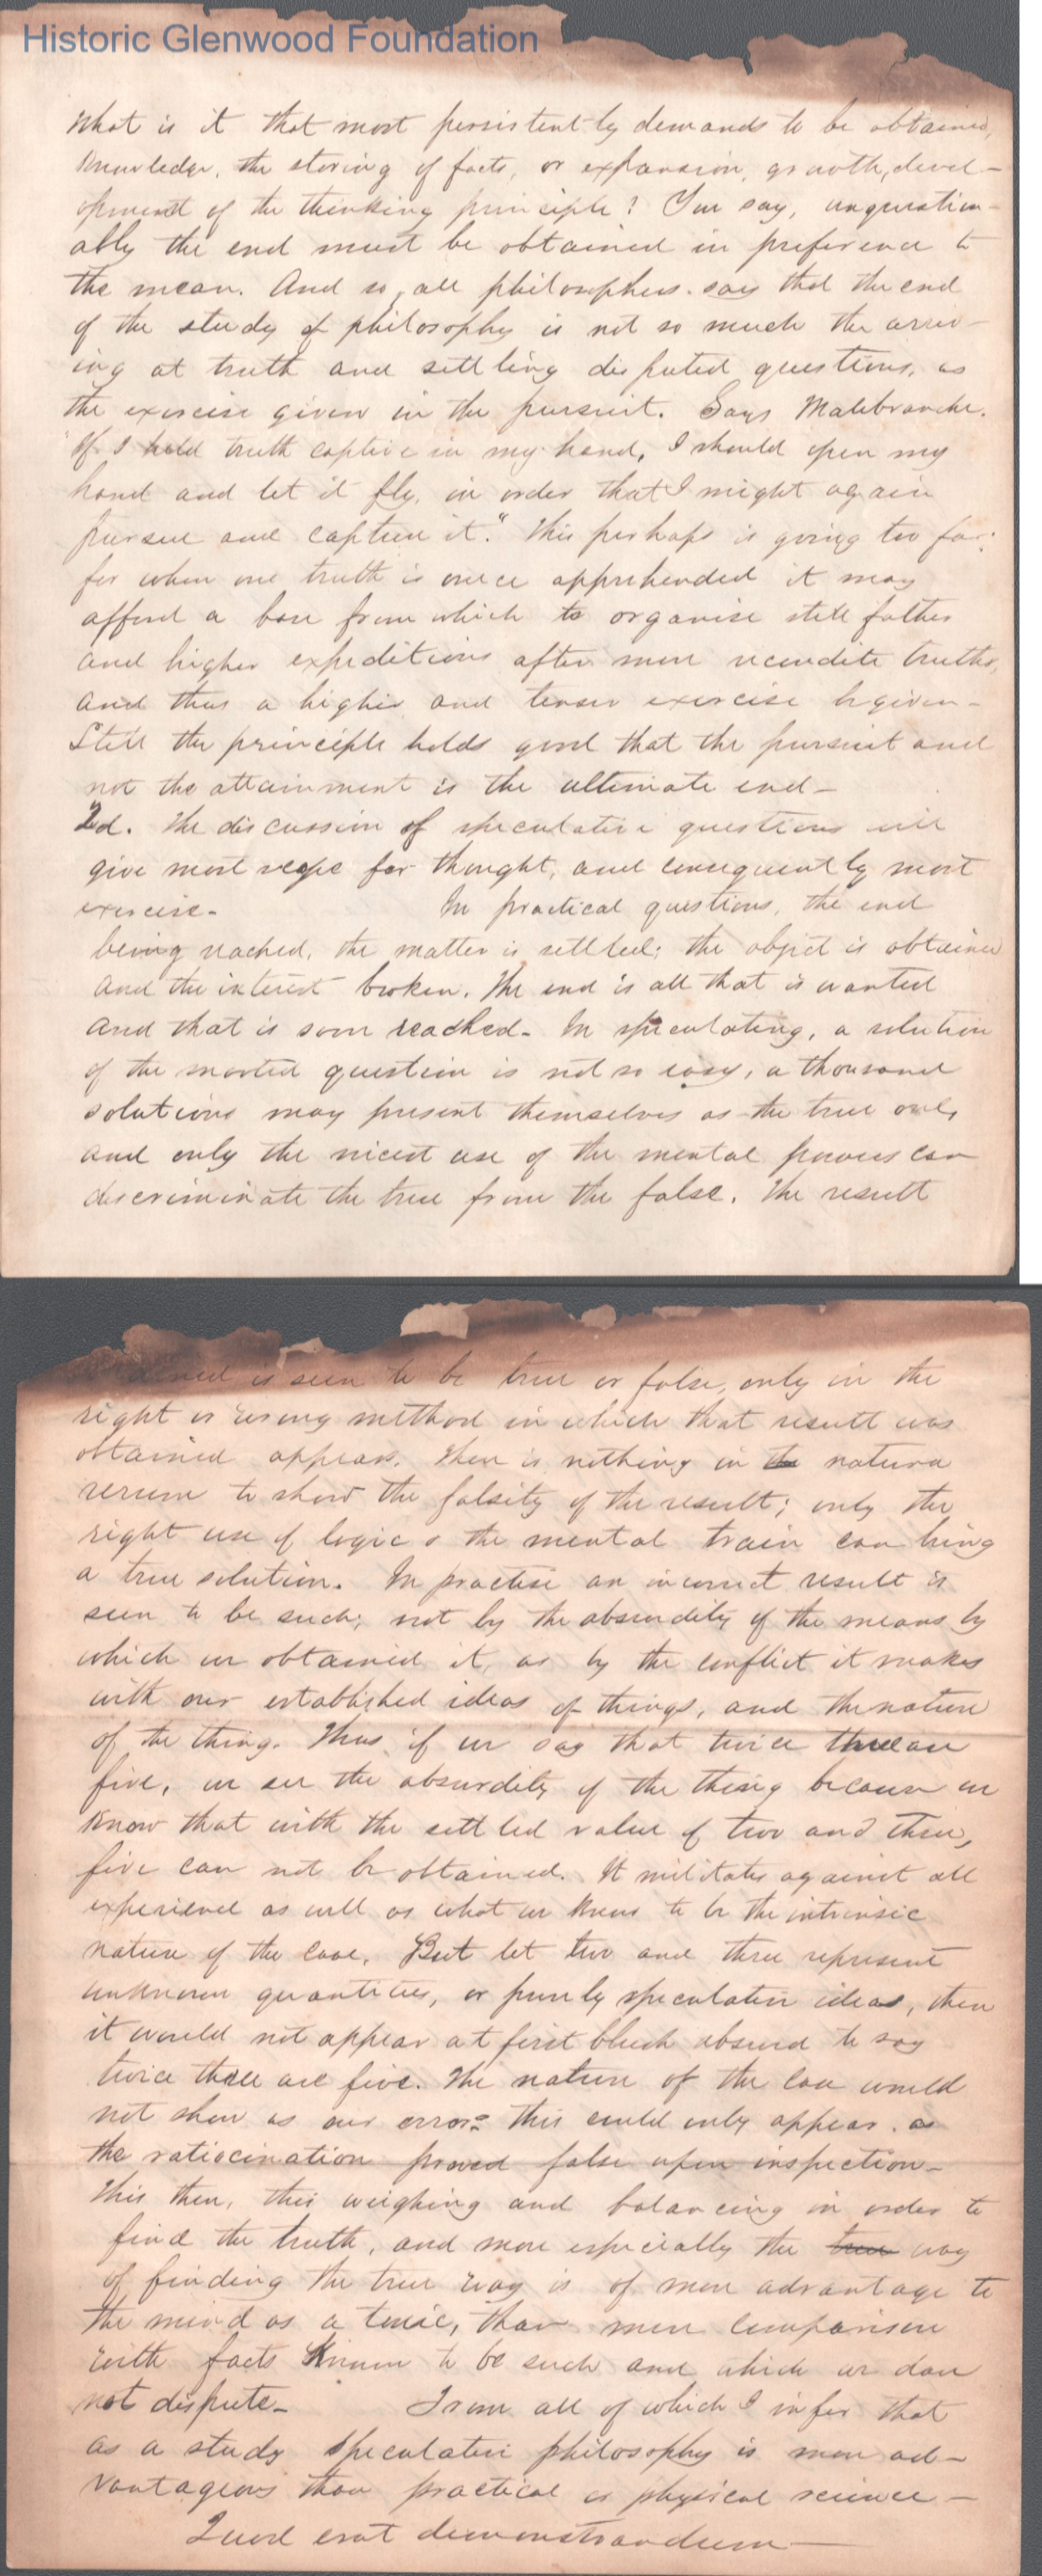 Historic Glenwood Foundation
What is it that most persistently demands to be obtained,
knowledge, the storing of facts, or expansion, growth, devel-
opment of the thinking principle? You say, unquestion-
ably the end must be obtained in preference to
the mean. And so, all philosophers say that the end
of the study of philosophy is not so much the arriv-
ing at truth and settling disputed questions, as
the exercise given in the pursuit. Says Malebranche.
"If I held truth captive in my hand, I should open my
hand and let it fly, in order that I might again
pursue and capture it." This perhaps is going too far;
for when one truth is once apprehended it may
afford a base from which to organise still father
and higher expeditions after more recondite truths,
and thus a higher and tenser exercise be given-
Still the principle holds good that the pursuit and
not the attainment is the ultimate end-
2d. The discussion of speculative questions will
give most scope for thought, and consequently most
exercise. In practical questions, the end
being reached, the matter is settled; the object is obtained
and the interest broken. The end is all that is wanted
and that is soon reached. In speculating, a solution
of the mooted question is not so easy, a thousand
solutions may present themselves as the true one,
and only the nicest use of the mental powers can
discriminate the true from the false. The result
is seen to be true or false, only in the
right or wrong method in which that result was
obtained appears. There is nothing in the natura
rerum to show the falsity of the result; only the
right use of logic & the mental train can bring
a true solution. In practise an incorrect result is
seen to be such, not by the absurdity of the means by
which we obtained it, as by the conflict it makes
with our established ideas of things, and the nature
of the thing. Thus, if we say that twice three are
five, we see the absurdity of the thing because we
know that with the settled value of two and three,
five can not be obtained. It militates against all
experience as well as what we know to be the intrinsic
nature of the case. But let two and three represent
unknown quantities, or purely speculative ideas, then
it would not appear at first blush absurd to say
twice three are five. The nature of the case would
not show us our error: this could only appear, as
the ratiocination proved false upon inspection-
This then, this weighing and balancing in order to
find the truth, and more especially the true way
of finding the true way is of more advantage to
the mind as a tonic, than mere comparison
with facts known to be such and which we dare
not dispute- From all of which I infer that
as a study speculative philosophy is more ad-
vantageous than practical or physical science-
Quod erat demonstrandum-